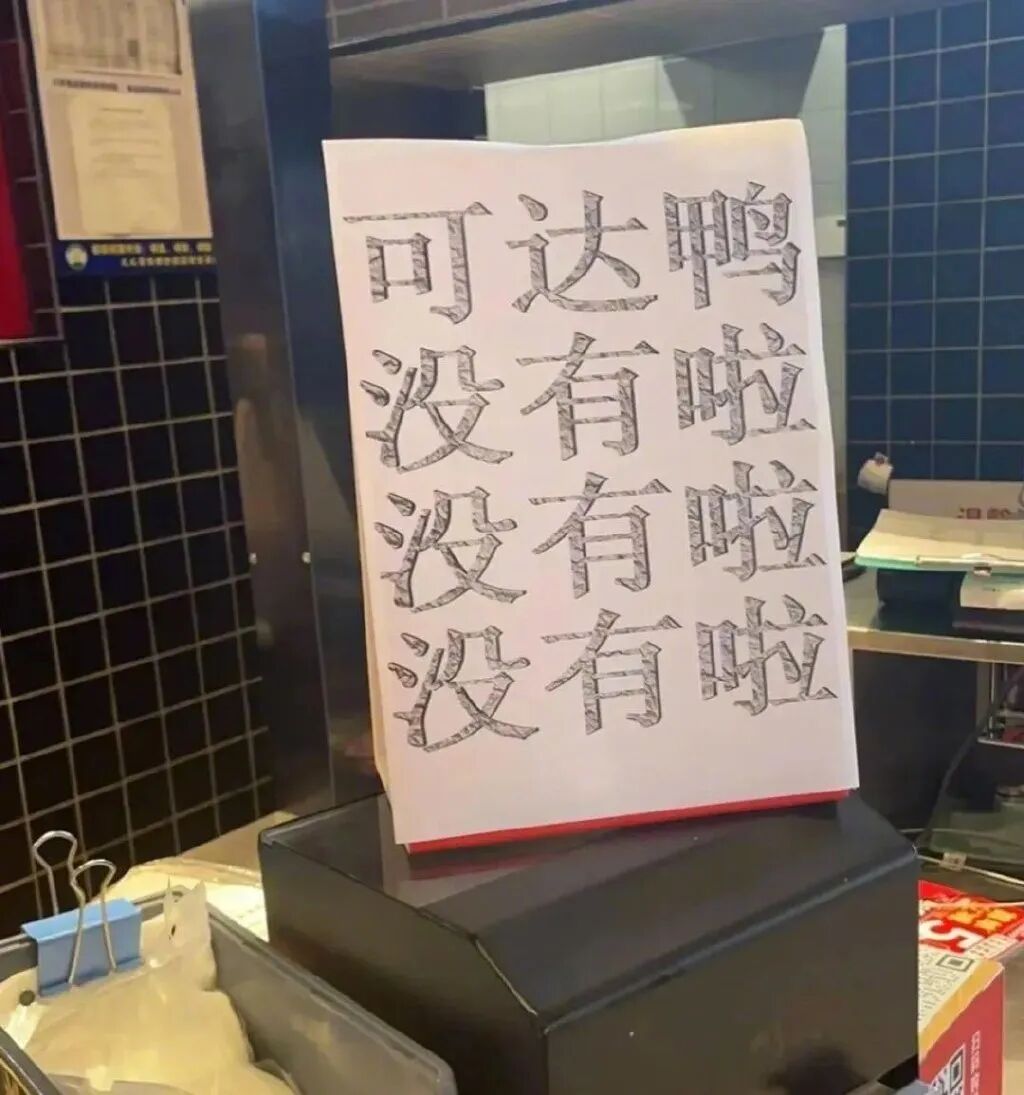 可达鸭
没有啦
没有啦
没有啦
5